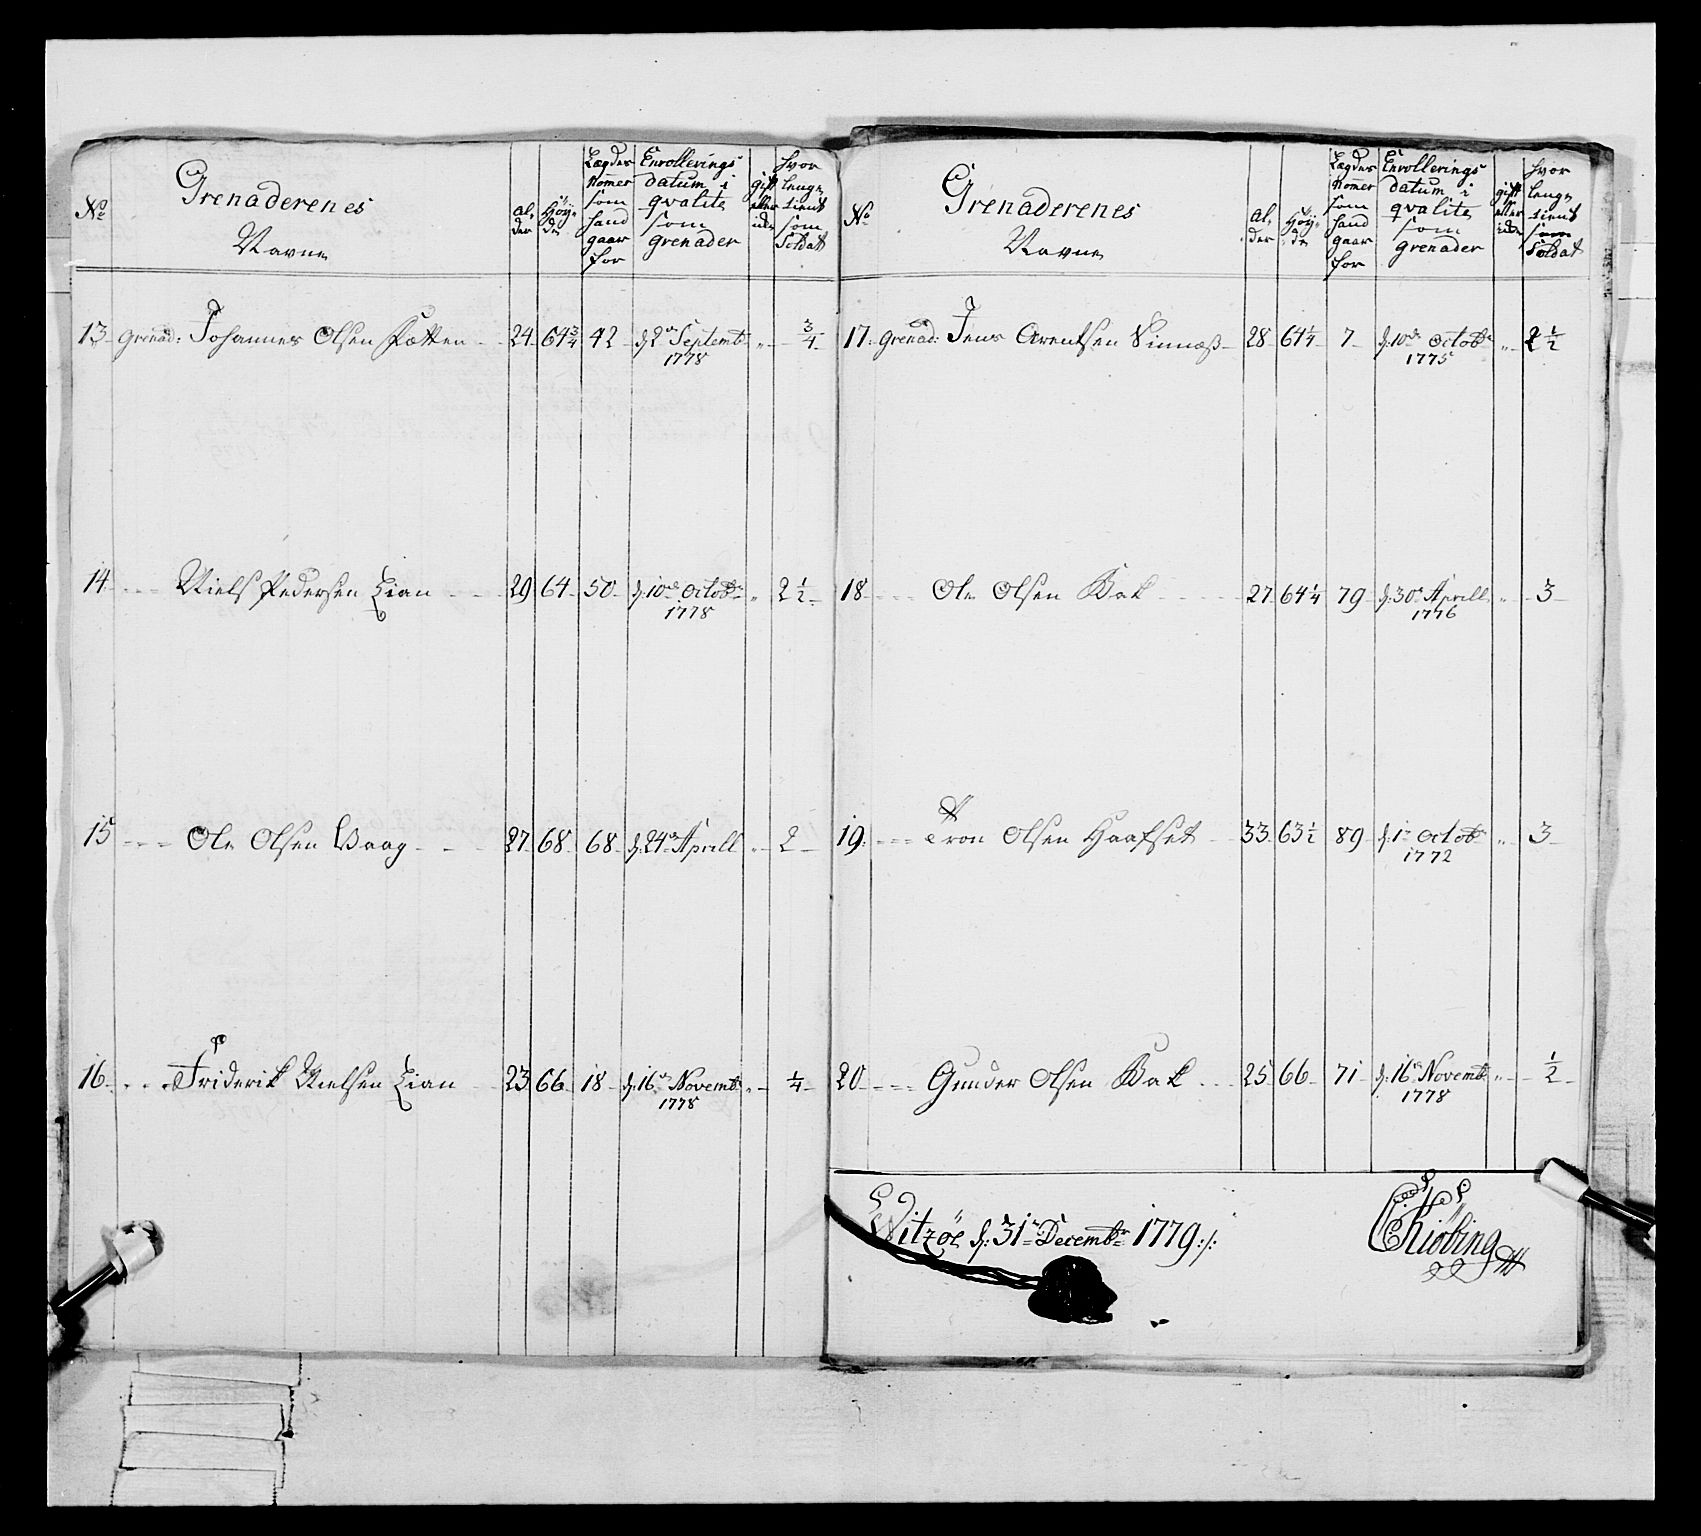 No Grenaderenes Navne al,, der Höy,, de Lægder Nomer som hand gaar for Enrollerings datum i qvalite som grenader gift eller icke hvor lenge tient som Soldat
13 Grenad: Johannes Olsen 24 64 3/4 42 d 2n Septemb: 1778 " 3/4
14 - - - Niels Pedersen Lian 29 64 50 d. 10de Octobr 1778 " 2 1/2
15 - - - Ole Olsen Vaag 27 68 68 d. 24n Aprill " 2
16 - - - Friderik Nielsen Lian 23 66 18 d. 16n Novembr 1778 " 1/4
No Grenaderenes Navne al,, der Höy,, de Lægder Nomer som hand gaar for Enrollerings datum i qvalite som grenader gift eller icke hvor lenge tient som Soldat
17 Grenad: Jens Arentsen Vinnæss 28 64 1/4 7 d. 10de Octobr 1775 " 2 1/2
18 - - - Ole Olsen Bak 27 64 1/4 79 d. 30n Aprill 1776 " 3
19 - - - Tron Olsen Haafset 33 63 1/2 89 d. 1n Octob 1772 " 3
20 - - - Gunder Olsen Bak 25 66 71 d. 16n Novemb 1778 " 1/2
Witzöe d: 31n Decembr 1779:/:
Kiöbing